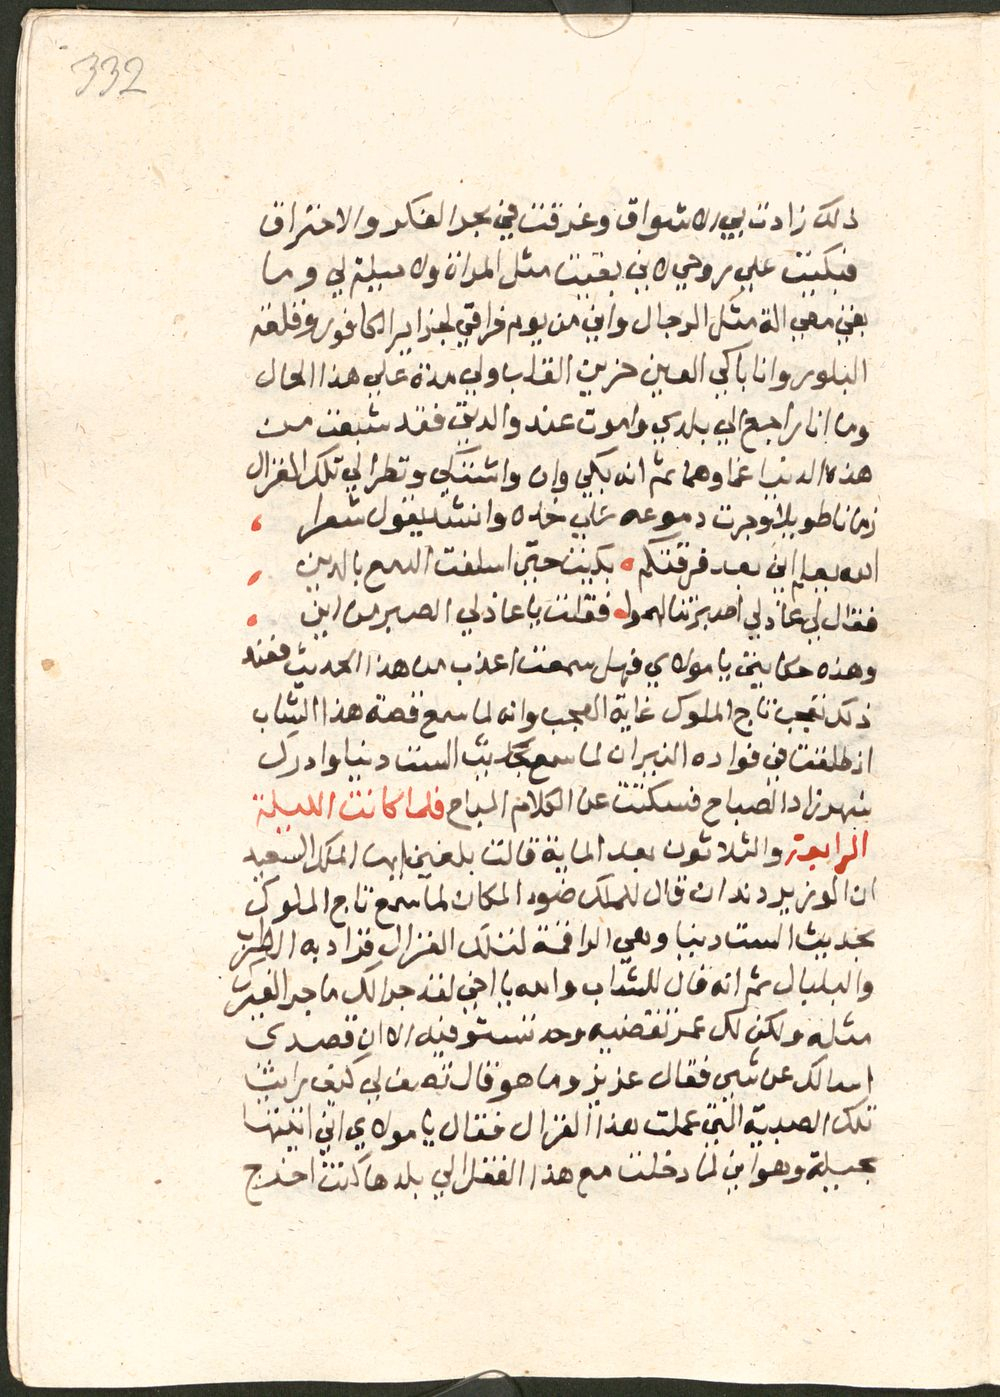 332
ذلك زادت بي الاشواق وغرقت في بحر الفكر والاحتراق
فبكيت علي روحي لاني بقيت مثل المراة ولا حيلة لي وما
بقي معي الة مثل الرجال واني من يوم فراقي لجزاير الكافور وقلعة
البلور وانا باكي العين حزين القلب ولي مدة علي هذا الحال
وما انا راجع الي بلدي واموت عند والدتي فقد شبعت من
هذه الدنيا غما وهما ثم انه بكي وان واشتكي ونظر الي تلك الغزال
زمانا طويلا وجرت دموعه علي خده وانشد يقول شعرا
الله يعلم اني بعد فرقتكم بكيت حتي اسلفت الدمع بالدين
فقال لي عاذلي اصبر تنالهموا فقلت يا عاذلي الصبر من اين
وهذه حكايتي يا مولاي فهل سمعت اعذب من هذا الحديث فعند
ذلك تعجب تاج الملوك غاية العجب وانه لما سمع قصة هذا الشاب
انطلقت في فواده النيران لما سمع بحديث الست دنيا وادرك
شهرزاد الصباح فسكتت عن الكلام المباح فلما كانت الليلة
الرابعة والثلاثون بعد الماية قالت بلغني ايها الملك السعيد
ان الوزير دندان قال للملك ضوء المكان لما سمع تاج الملوك
بحديث الست دنيا وهي الراقمة لتلك الغزال فزاد به الطرب
والبلبال ثم انه قال للشاب والله يا اخي لقد جرا لك ما جرا لغيرك
مثله ولكن لك عمر تقضيه وحد تستوفيه الا ان قصدي
اسالك عن شي فقال عزيز وما هو قال تصف لي كيف رايت
تلك الصبية التي عملت هذا الغزال فقال يا مولاي اني اتيتها
بحيلة وهو اني لما دخلت مع هذا القفل الي بلدها كنت اخرج